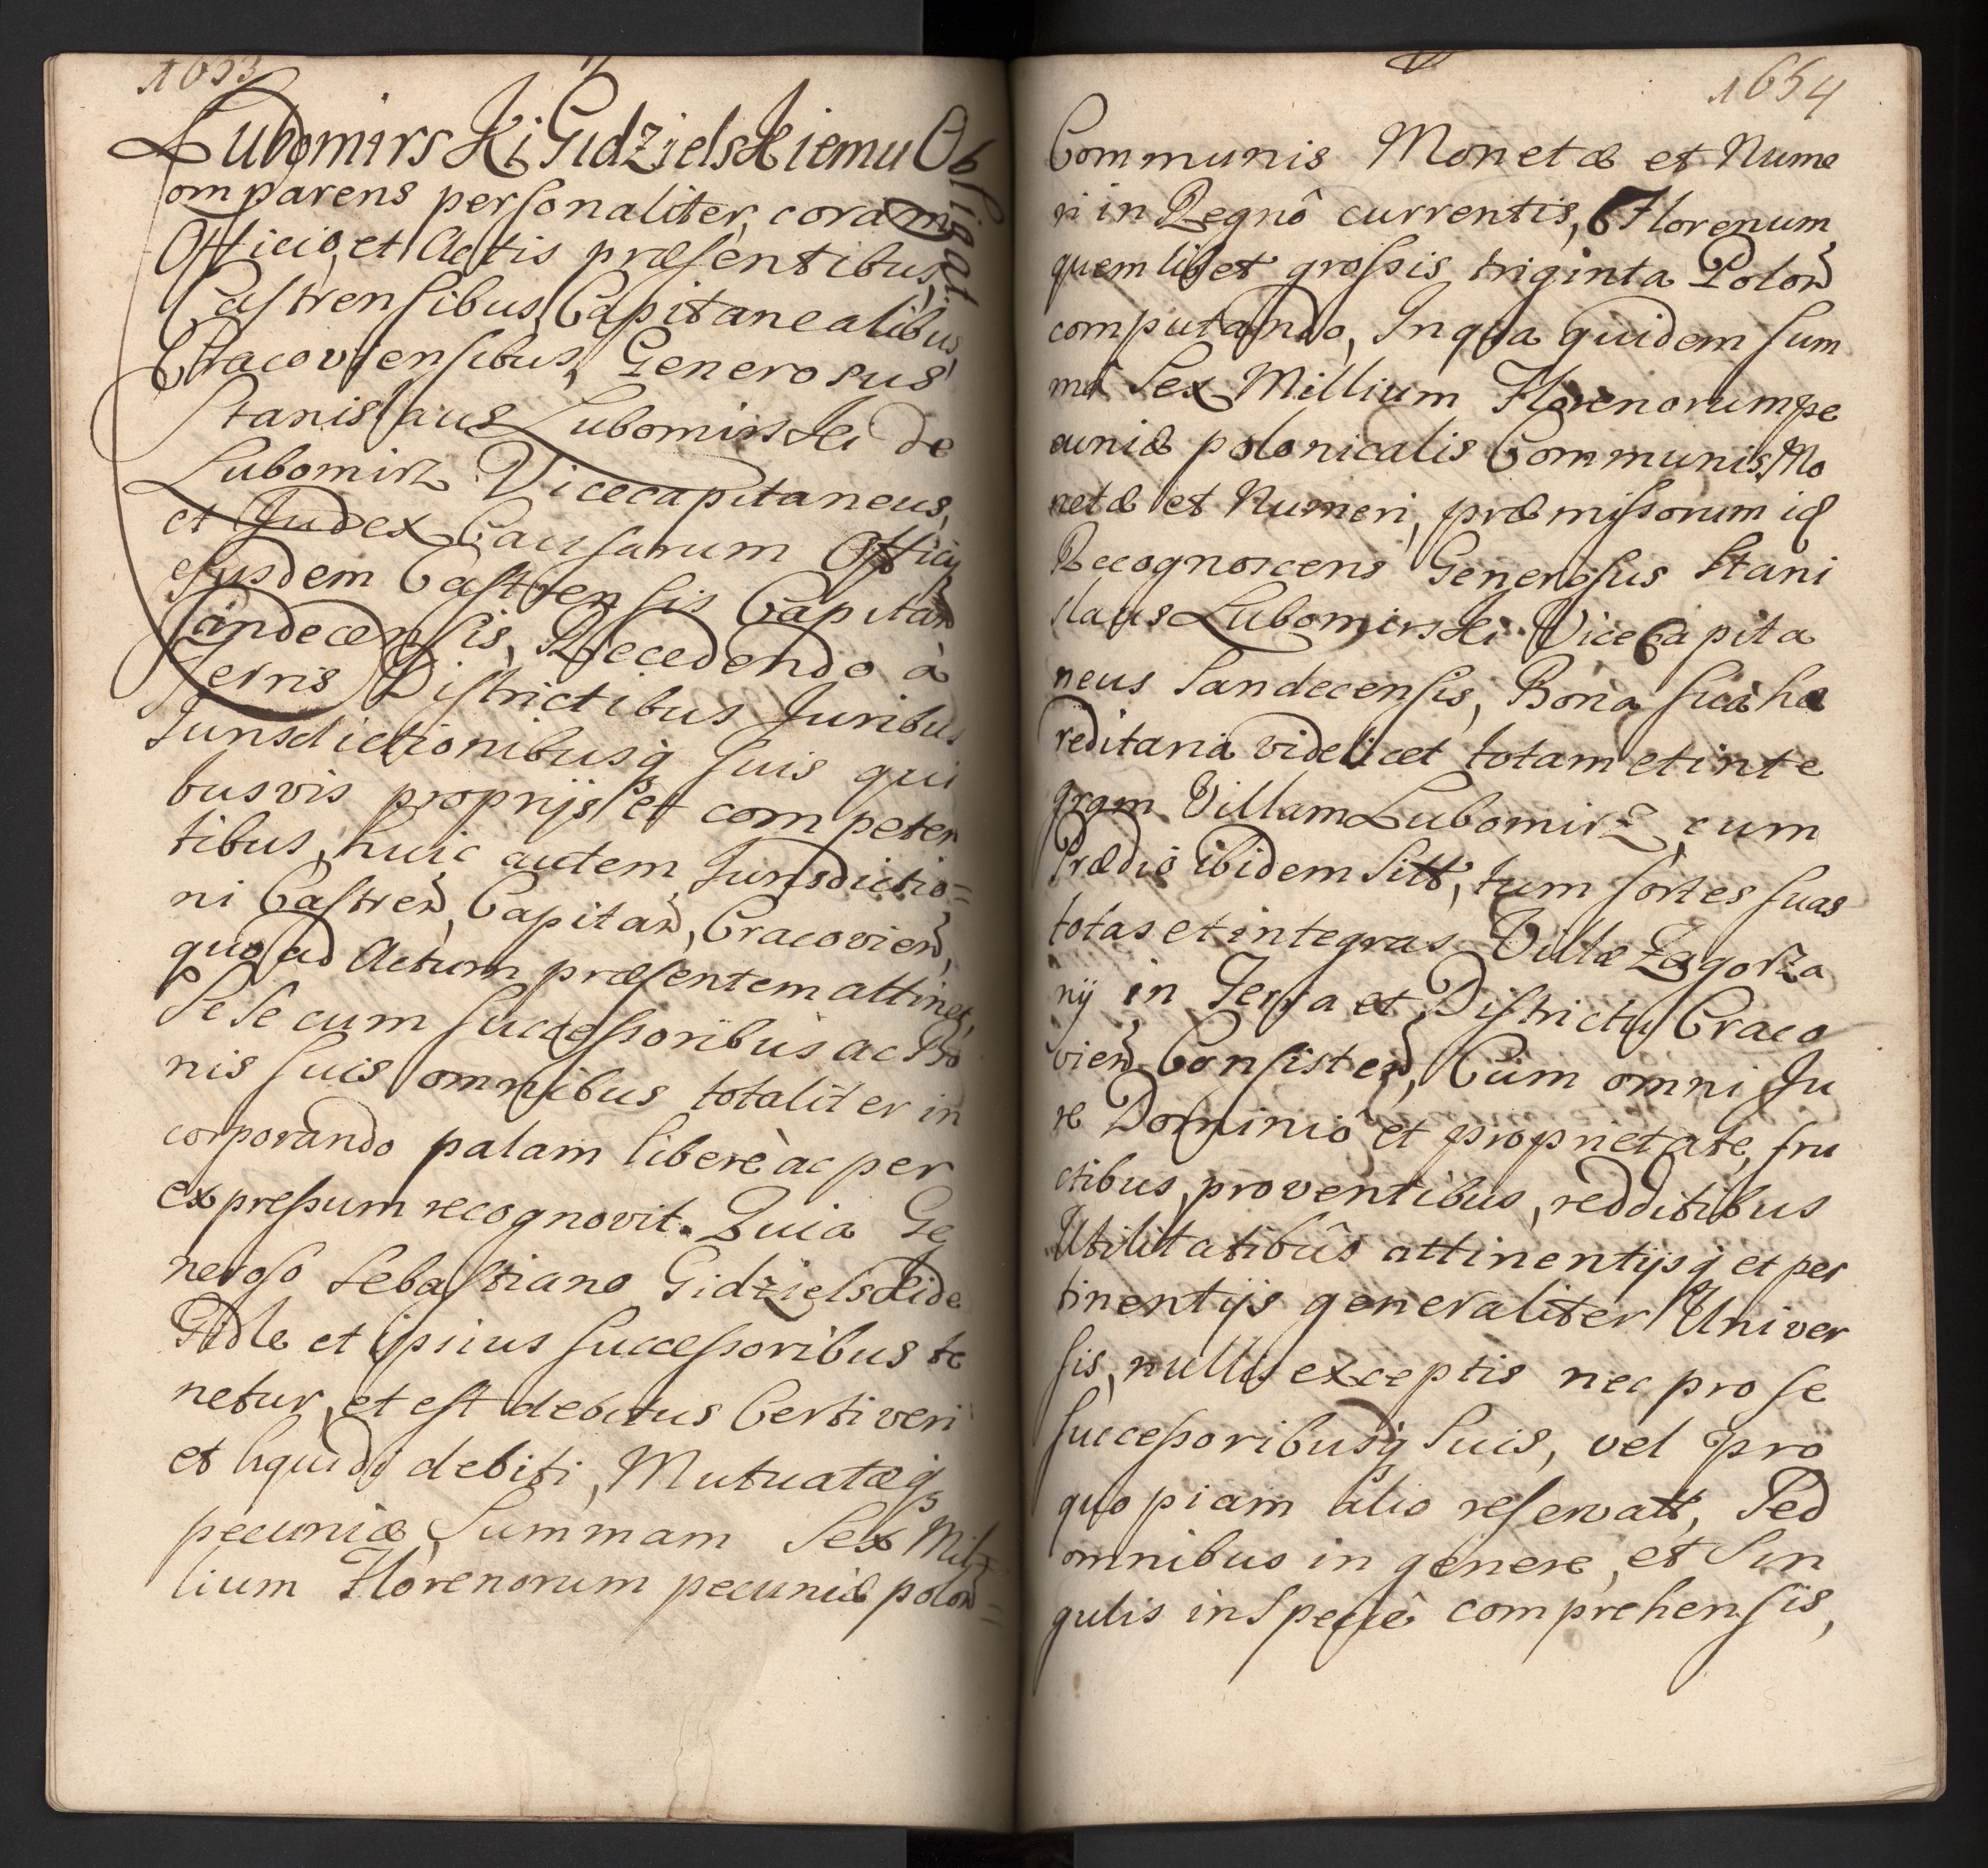 1653
Lubomirski Gidzielskiemu Obligat
Comparens personaliter, coram
Officio, et Actis præsentibus,
Castrensibus, Capitanealibus,
Cracoviensibus, Generosus
Stanislaus Lubomirski de
Lubomirz Vicecapitaneus,
et Judex Causarum Officij
ejusdem Castrensis Capitan
Sandecensis, Recedendo à
Terris Districtibus Juribus
Jurisdictionibusq suis qui
busvis proprijs et competen
tibus, huic autem Jurisdictio=
ni Castren, Capitan, Cracovien,
quo ad Actum præsentem attinet,
Se Se cum Successoribus ac Bo
nis suis omnibus totaliter in
corporando palam liberè ac per
expressum recognovit. Quia Ge
neroso Sebastiano Gidzielski de
Gidle et ipsius successoribus te
netur, et est debitus Certi veri
et liquidi debiti, Mutuatæq
pecuniæ Summam Sex Mil=
lium Florenorum pecuniæ polon=
1654
Communis Monetæ et Nume
ri in Regnô currentis, Florenum
quemlibet grossis triginta Polon
computando, In qua quidem sum
mâ Sex Millium Florenorum pe
cuniæ polonicalis Communis Mo
netæ et Numeri, præmissorum id
Recognoscens Generosus Stani
slaus Lubomirski ViceCapita
neus Sandecensis, Bona sua hæ
reditaria videlicet totam et inte
gram Villam Lubomirz, cum
Prædio ibidem Sitt, tum sortes suas
totas et integras Villæ Zagorza
nij in Terra et Districtu Craco
vien Consisten, Cum omni Ju
re Dominiô et proprietate, fru
ctibus, proventibus, redditibus
Utilitatibûs attinentijsq et per
tinentijs generaliter Univer
sis, nullis exceptis nec pro se
successoribusq suis, vel pro
quopiam alio reservatt, Sed
omnibus in genere, et Sin
gulis in Speciê comprehensis,